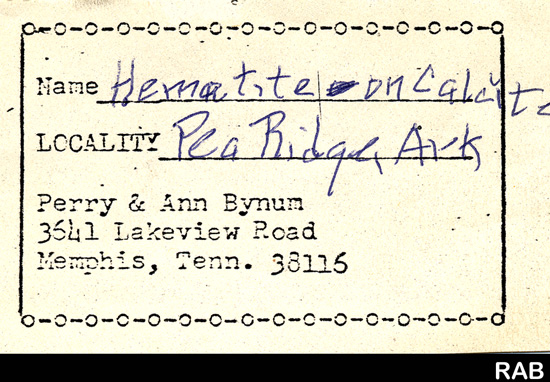 Name Hematite on Calcite
LOCALITY Pea Ridge, Ark
Perry & Ann Bynum
3641 Lakeview Road
Memphis, Tenn. 38116
RAB